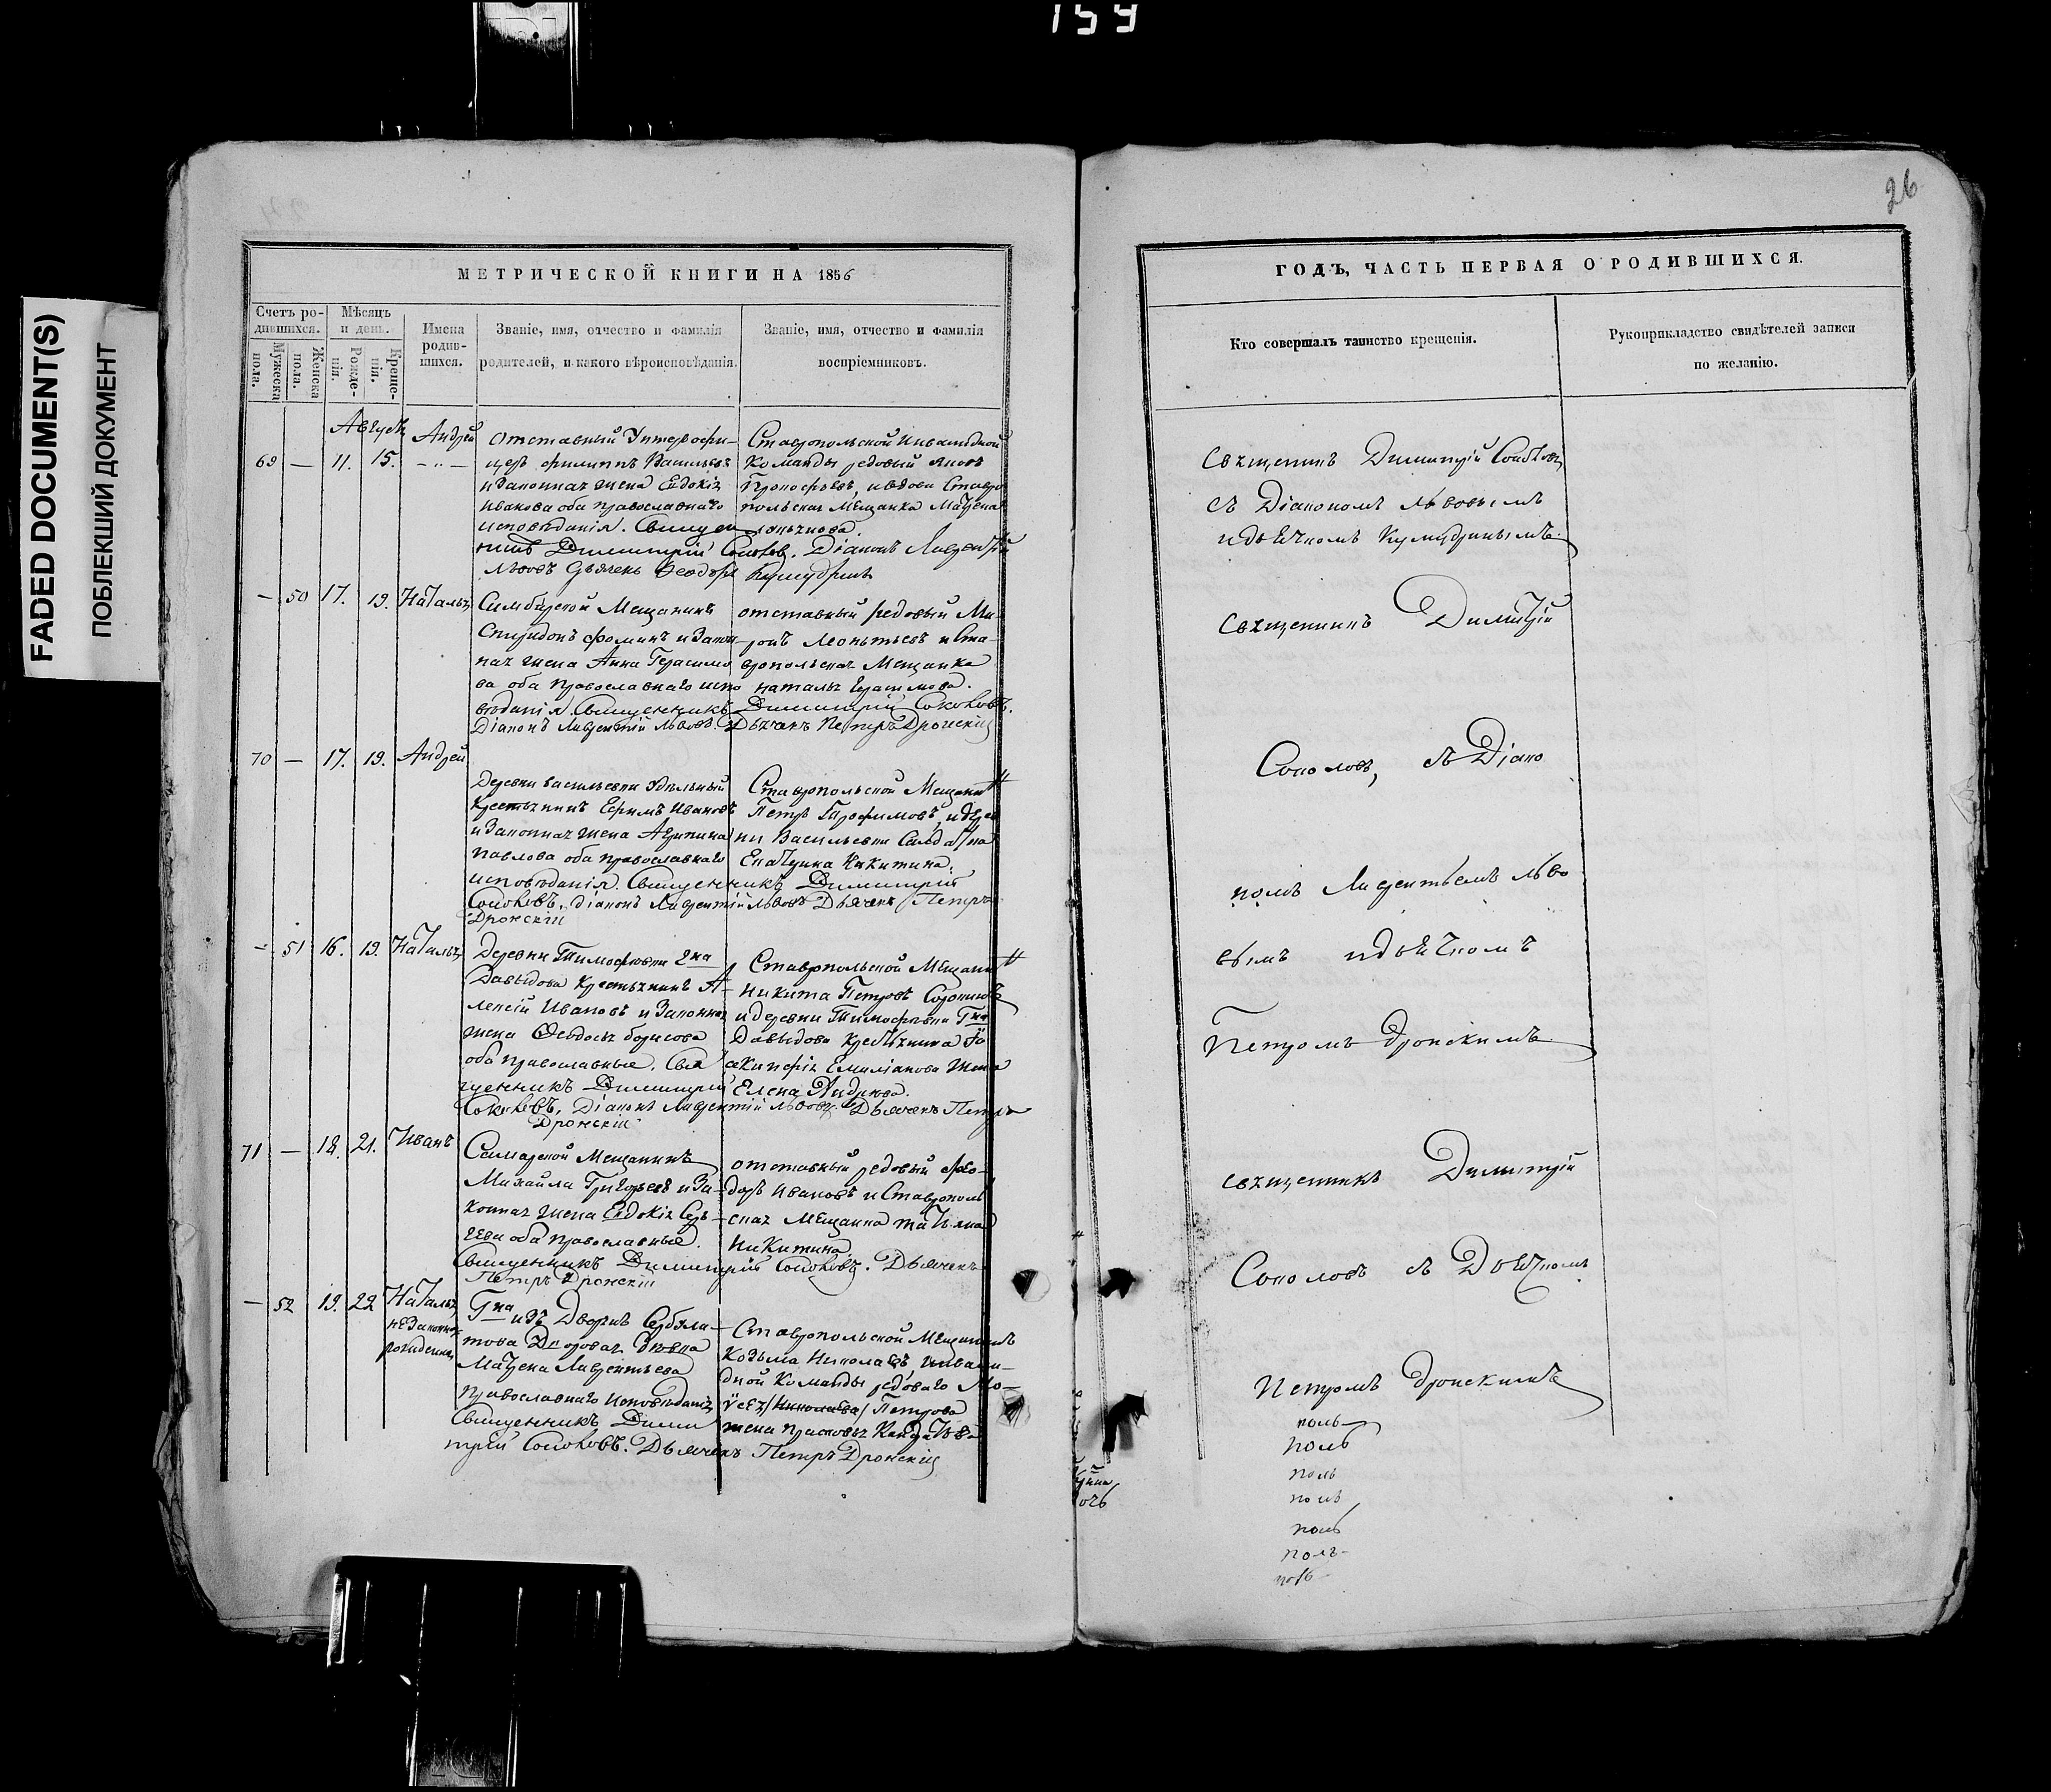 159
FADED DOCUMENT(S)
ПОБЛЕКШИЙ ДОКУМЕНТ
26
МЕТРИЧЕСКОЙ КНИГИ НА 1856
Счетъ ро-
дившихся.
Мужеска
пола.
Женска
пола.
Мѣсяцъ
и день.
Рожде-
нія.
Креще-
нія.
Имена
родив-
шихся.
Званіе, имя, отчество и фамилія
родителей, и какого вѣроисповѣданія.
Званіе, имя, отчество и фамилія
воспріемниковъ.
Августъ
69 — 11. 15. Андрей
отставный Унтерофи-
церъ филиппъ Васильевъ
и законная жена Евдокія
Иванова оба православнаго
исповѣданія. Священ
никъ Димитрій Соколовъ. Діаконъ Лаврентій
Львовъ Дьячекъ Ѳеодоръ
Ставропольской Инвалидной
Команды редовый Яковъ
Прокофьевъ, и вдова Ставро
польская Мещанка Матрена
— 50 17. 19. Наталья
Симбирской Мещанинъ
Спиридонъ фоминъ и закон
ная жена Анна Герасимо
ва оба православнаго испо
вѣданія. Священникъ Димитрій Соколовъ.
Діаконъ Лаврентій Львовъ. Дьячекъ Петръ Дронскій
отставный редовый Ми-
ронъ Леонтьевъ и Ста-
вропольская Мещанка
наталья Герасимова.
70 — 17. 19. Андрей
Деревни васильевки Удѣльный
крестьянинъ Ефимъ Ивановъ
и законная жена Агрипина
Павлова оба православнаго
исповѣданія. Священникъ Димитрій
Соколовъ. діаконъ Лаврентій Львовъ Дьячекъ Петръ
Дронскій
Ставропольской Мещани
Петръ Трофимовъ, и дерев
ни Васильевки Салда/тка
Екатерина Никитина.
— 51 16. 19. Наталья
Деревни Тимофѣевки Г-на
Давыдова крестьянинъ А-
лексій Ивановъ и законная
жена Ѳеодосья борисова
оба православные. Свя
щенникъ Димитрій
Соколовъ, Діаконъ Лаврентій Львовъ. Дьячекъ Петръ
Дронскій
Ставропольской Мещани
Никита Петровъ
и деревни Тимофѣевки Г-на
Давыдова
Емиліанова жена
Елена Андреева.
71 — 18. 21. Иванъ
Самарской Мещанинъ
Михайла Григорьевъ и за-
конная жена Евдокія Сер-
геева оба православные.
Священникъ Димитрій Соколовъ. Дьячекъ
Петръ Дронскій
отставный редовый Фео-
доръ Ивановъ и Ставрополь
ская Мещанка татьяна
Никитина.
— 52 19. 22 Наталья
незаконно
рожденная
Г-на изъ Дворянъ
Матрена Лаврентьева
православнаго исповѣданія
Священникъ Дими
трій Соколовъ. Дьячекъ Петръ Дронскій
Ставропольской Мещанинъ
Козьма Николаевъ, инвали-
дной Команды редоваго Мо-
ѵсея /Николаева/ Петрова
жена прасковья
ГОДЪ, ЧАСТЬ ПЕРВАЯ О РОДИВШИХСЯ.
Кто совершалъ таинство крещенія.
Рукоприкладство свидѣтелей записи
по желанію.
Священникъ Димитрій Соколовъ
съ Діакономъ Львовымъ
и дьячкомъ
Священникъ Димитрій
Соколовъ, съ Діако
номъ Лаврентьемъ Льво
вымъ и дьячкомъ
Петромъ Дронскимъ
Священникъ Димитрій
Соколовъ съ Дьячкомъ
Петромъ Дронскимъ